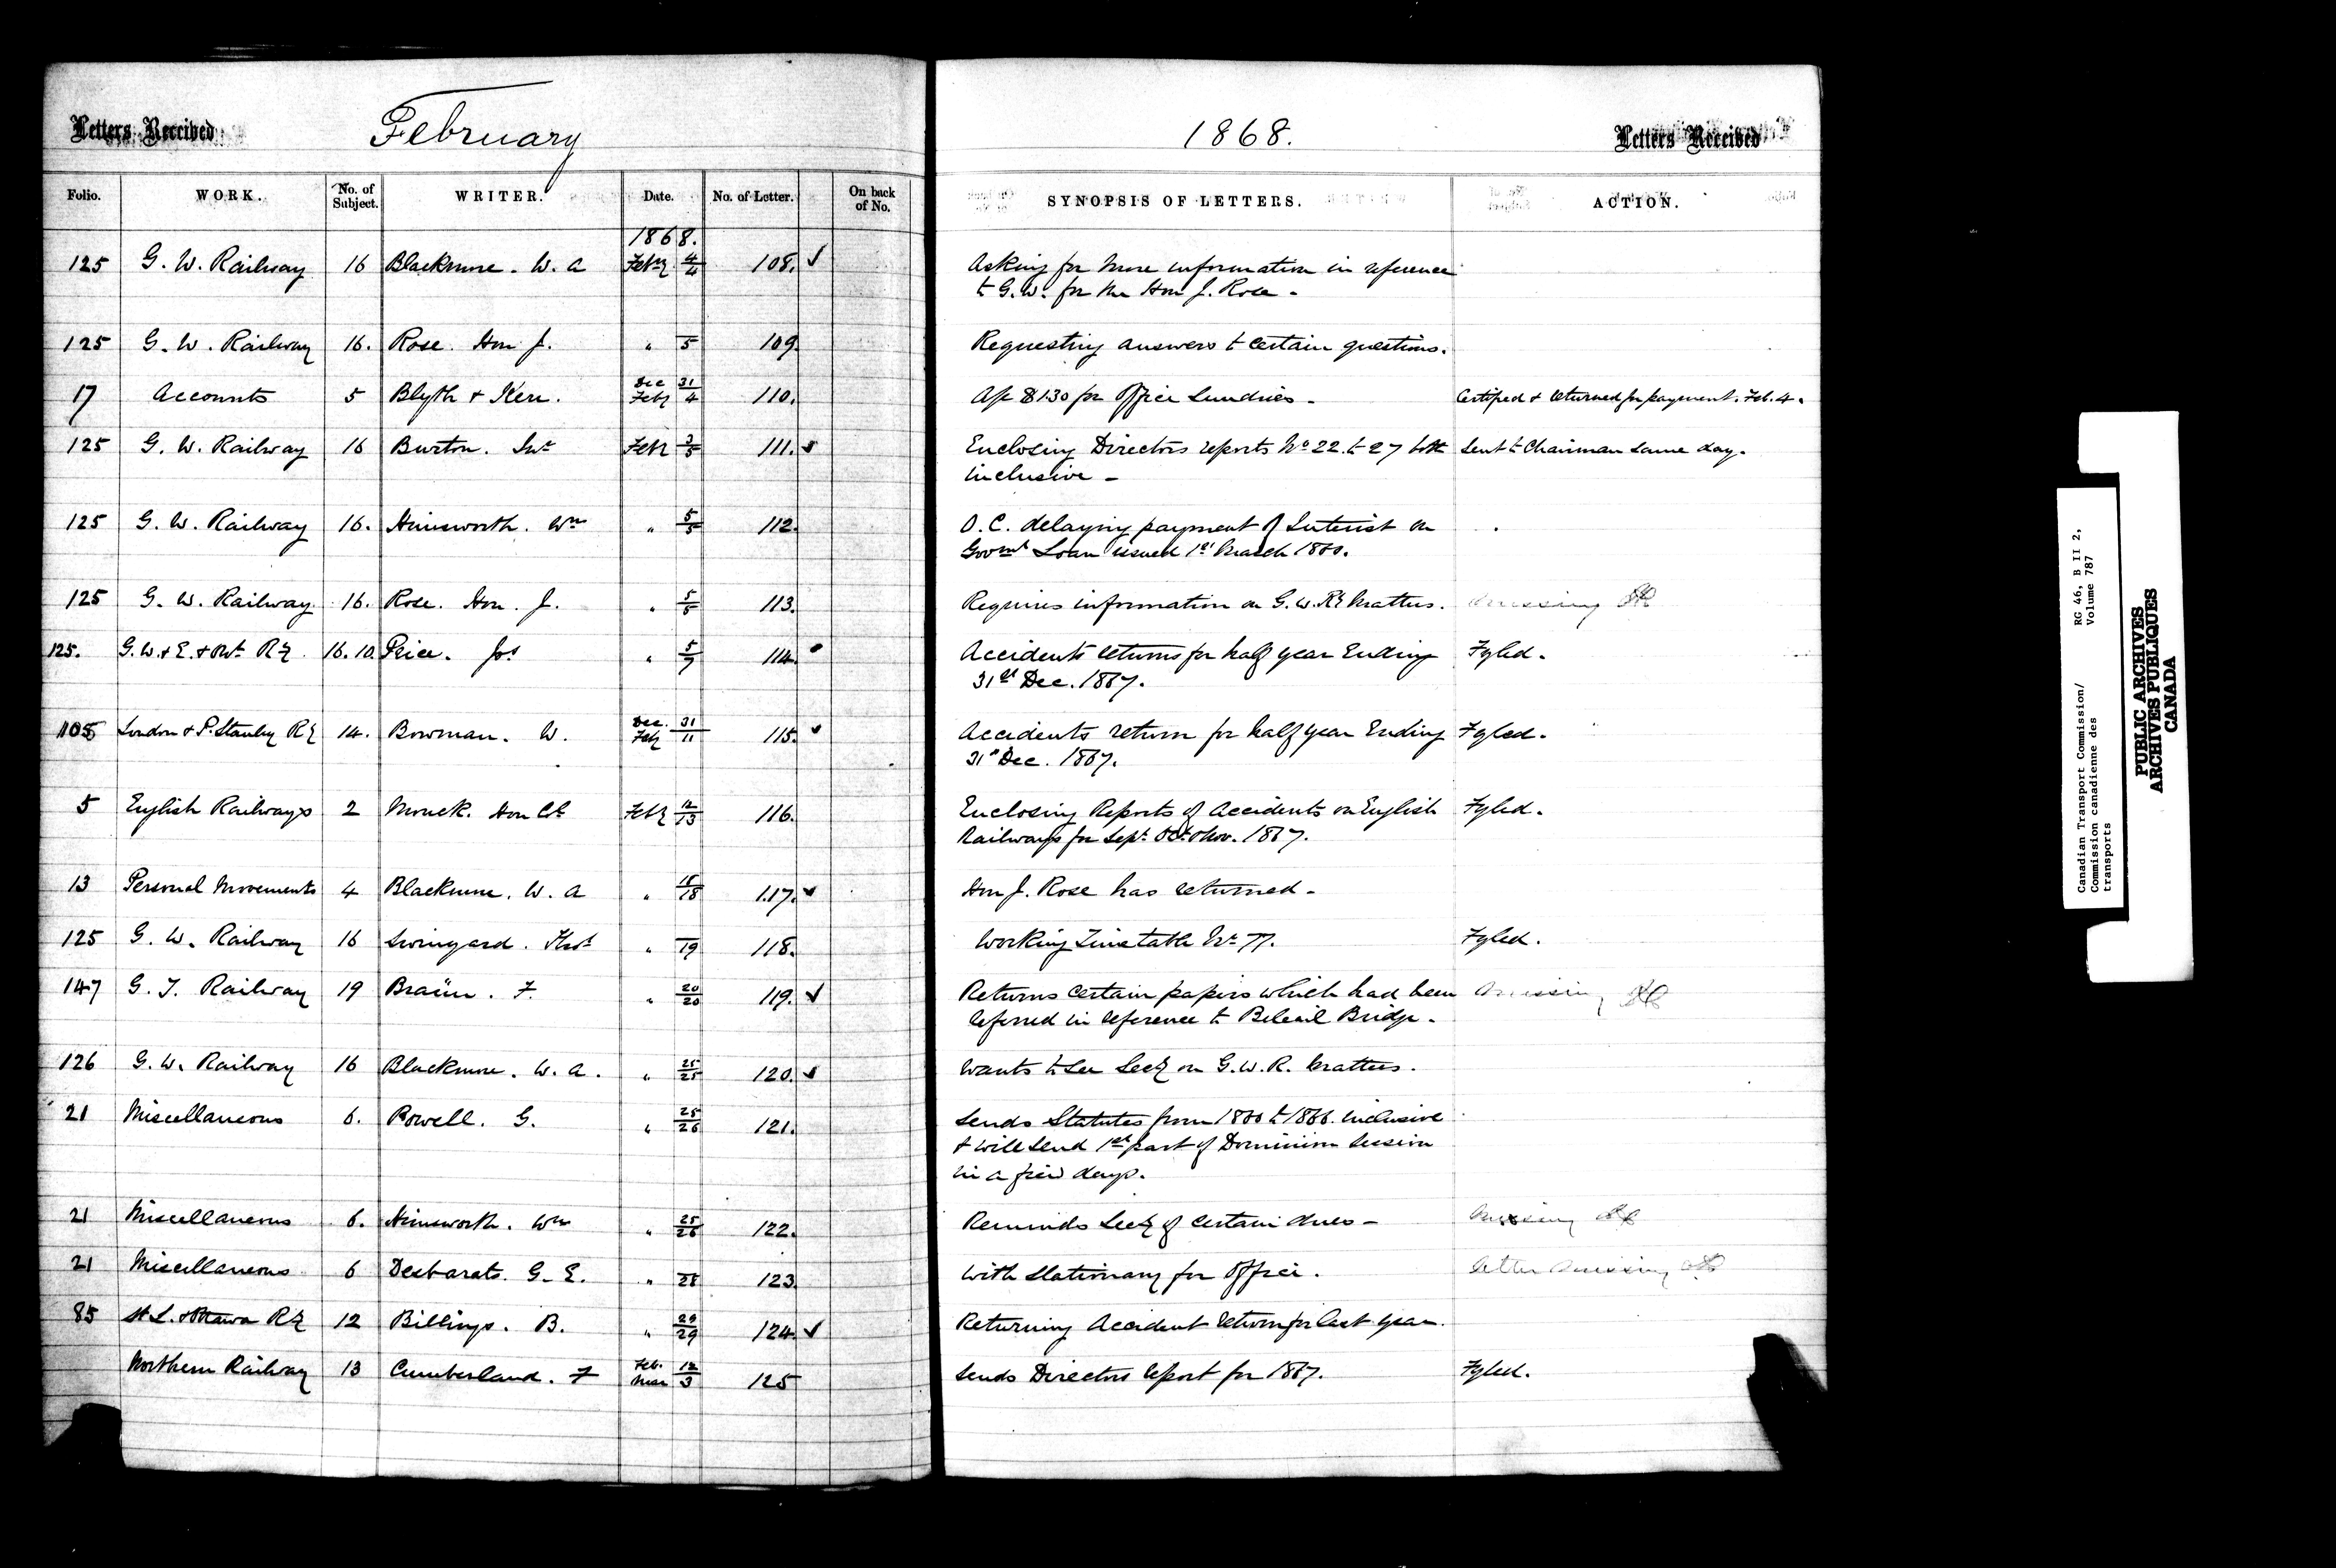 Letters Received
February
1868.
Letters Received
Folio. WORK. No. of Subject. WRITER. Date. No. of Letter. On back of No. SYNOPSIS OF LETTERS. ACTION.
1868.
125 G. W. Railway 16 Blackmore. W. A Feby 4/4 108. ✓ Asking for more information in reference
to G.W. for the Hon J. Rose -
125 G. W. Railway 16. Rose. Hon J. " 5 109. Requesting answers to certain questions.
17 Accounts 5 Blyth + Kerr. Dec 31 Feby 4 110. A/c $1.30 for Office Sundries - Certified + returned for payment. Feb. 4.
125 G. W. Railway 16 Burton. Feby 3/5 111. Enclosing Directors reports No 22. to 27 both Sent to Chairman same day.
inclusive -
125 G. W. Railway 16. Hinsworth. Wm " 5/5 112. O.C. delaying payment of Interest on
Govmt Loan issued 1st March 1860.
125 G. W. Railway 16. Rose. Hon. J. " 5/5 113. Requires information on G.W. Ry Matters. missing
125. G.W. + E. + Ont. Ry. 16.10. Price. Jos " 5/7 114. Accidents returns for half year Ending Fyled.
31st Dec. 1867.
105 London + P. Stanley Ry 14. Bowman. W. Dec. 31 Feby 11 115. Accidents return for half year Ending Fyled.
31st Dec. 1867.
5 English Railways 2 Monck. Hon Feby 12/13 116. Enclosing Reports of Accidents on English Fyled.
Railways for Sept. Oct. + Nov. 1867.
13 Personal Movements 4 Blackmore. W. A " 18/18 117. ✓ Hon J. Rose has returned -
125 G. W. Railway 16 Swinyard. Thos " 19 118. Working Time table No. 77. Fyled.
147 G. T. Railway 19 Braün. F. " 20/20 119. ✓ Returns certain papers which had been missing
referred in reference to Beloeil Bridge -
126 G. W. Railway 16 Blackmore. W. A. " 25/25 120. ✓ Wants to see Secy on G.W.R. Matters.
21 Miscellaneous 6. Powell. G. " 25/26 121. Sends Statutes from 1860 to 1866. inclusive
+ will send 1st part of Dominion Session
in a few days.
21 Miscellaneous 6. Hinsworth. Wm " 25/26 122. Reminds Secy of certain dues - missing
21 Miscellaneous 6 Desbarats. G. E. " 28 123. With Stationary for Office. Letter missing
85 St L. + Ottawa Ry 12 Billings. B. " 29/29 124. ✓ Returning Accident return for last year.
Northern Railway 13 Cumberland. F Feb. 12 Mar 3 125 Sends Directors report for 1867. Fyled.
Canadian Transport Commission/
Commission canadienne des
transports
RG 46, B II 2,
Volume 787
PUBLIC ARCHIVES
ARCHIVES PUBLIQUES
CANADA